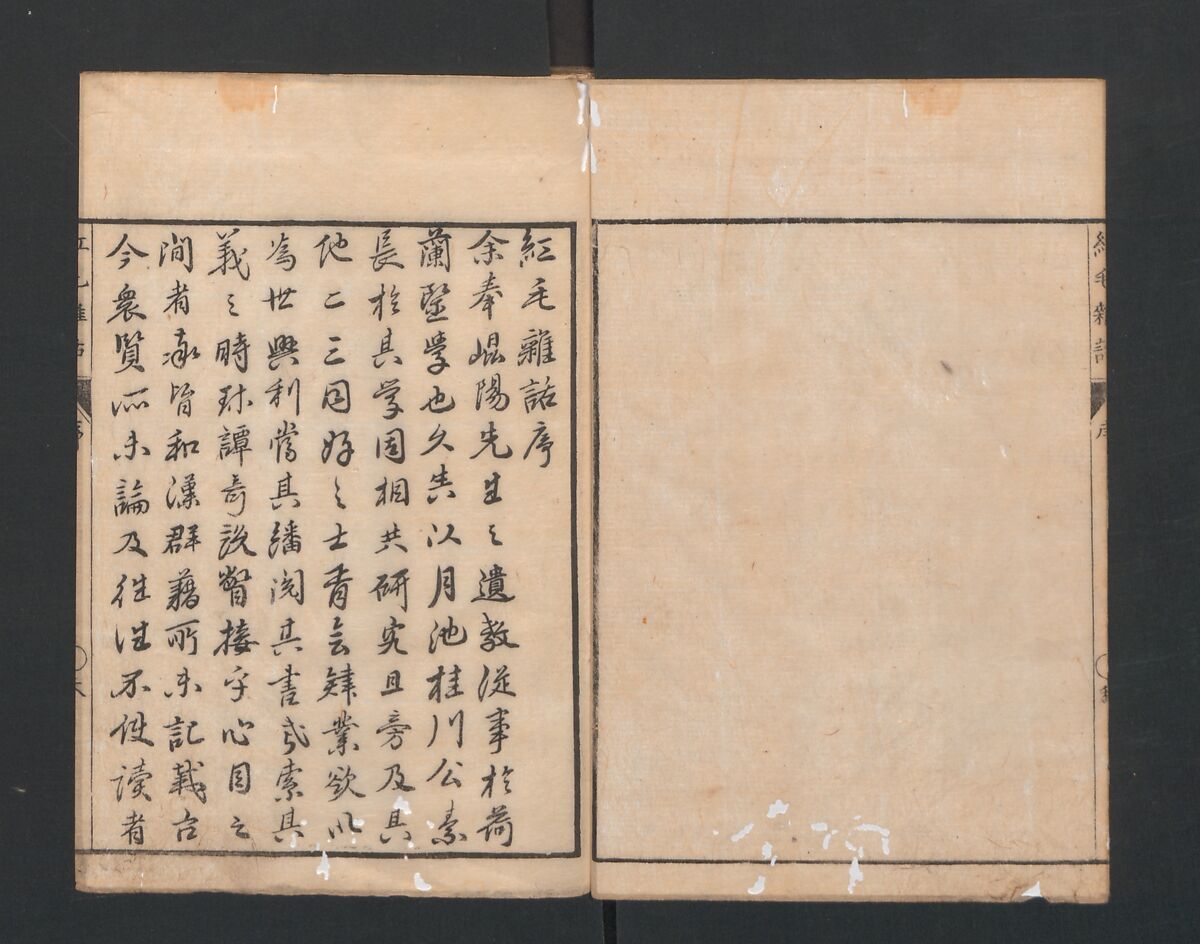 紅毛雜話
紅毛雜話序
余奉崐陽先生之遺教從事於荷
蘭醫學也久矣以月池桂川公素
長於其学固相共研究且旁及其
他二三同好之士胥會肄業欲以
為世興利嘗其繙閲其書或索其
義之時珎譚奇説瞥接乎心目之
間者率皆和漢群藉所未記載古
今衆賢所未論及徃徃不使讀者